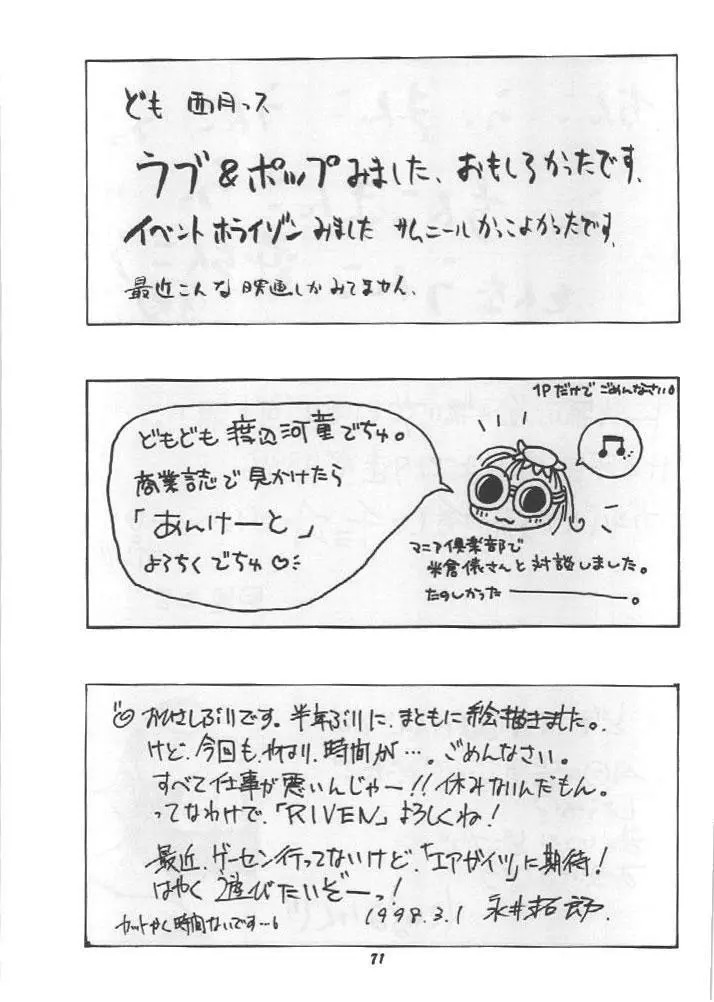 ども 西月っス
ラブ&ポップみました、おもしろかったです、
イベントホライゾンみました サムニールかっこよかったです、
最近こんな映画しかみてません、
1Pだけでごめんなさい。
どもども渡辺河童でちゅ。
商業誌で見かけたら
「あんけーと」
よろちくでちゅ♡
マニア倶楽部で
米倉俵さんと対談しました。
たのしかった―――。
おひさしぶりです。半年ぶりに、まともに絵描きました。
けど、今回も、やはり、時間が…。ごめんなさい。
すべて仕事が悪いんじゃー!!休みないんだもん。
ってなわけで、「RIVEN」よろしくね!
最近、ゲーセン行ってないけど、「エアガイツ」に期待!
はやく遊びたいぞーっ!
1998.3.1 永井拓郎.
カットかく時間ないです…。
71